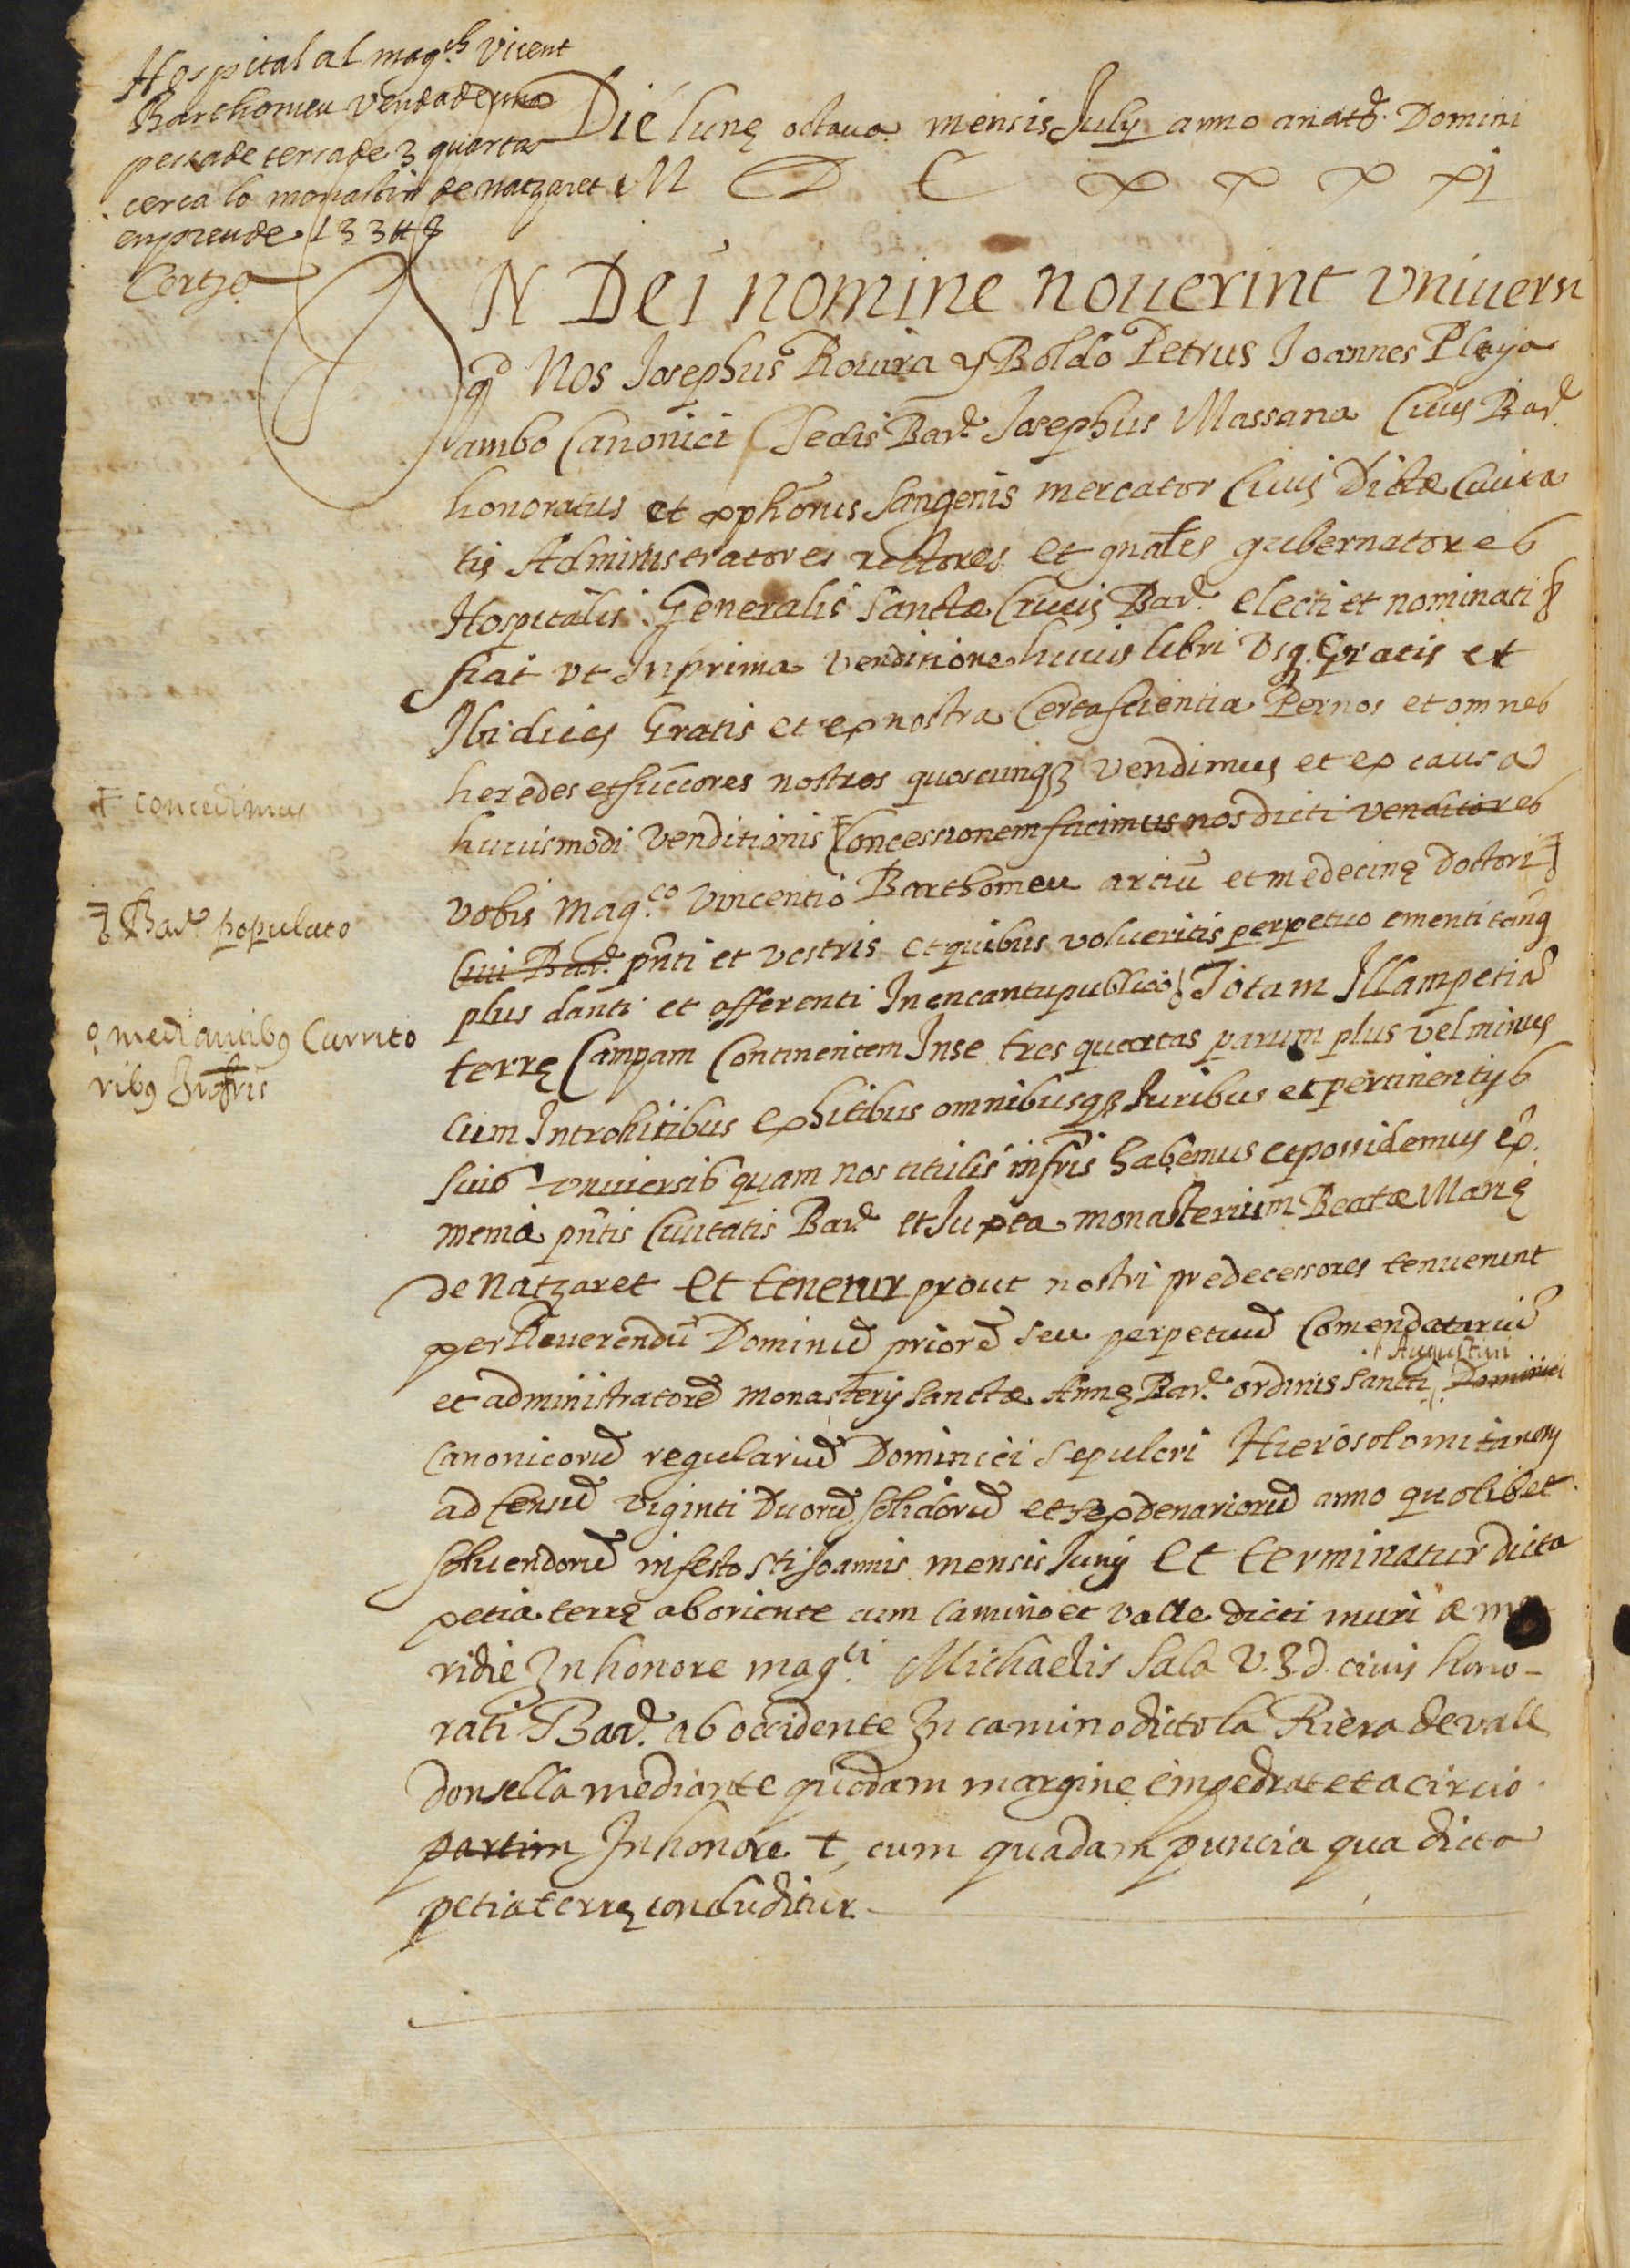 Hospital al mag.ch Vicent
Barthomeu venda de una
pessa de terra de 3 quartas
cerca lo monastir de natzaret
en preu de 133 ₶ 8
Die lunę octava mensis July anno a natd. Domini
M D C x x x x j
IN Dei nomine noverint universi
qd Nos Josephus Rovira y Boldo Petrus Joannes Pleja
ambo Canonici Sedis Bard. Josephus Massana Civis Bard.
honoratus et xphorus Sangenis mercator Civis Dictæ Civita
tis Administratores rectores et gnales gubernatores
Hospitalis Generalis Sanctæ Crucis Bard. electi et nominati
fiat ut In prima venditione huius libri Usq. Gratis et
Ibi dicas Gratis et ex nostra Certa scientia Per nos et omnes
heredes et succores nostros quoscunqz vendimus et ex causa
huiusmodi venditionis Concessionem facimus nos dicti venditores
vobis mag.co Vincentio Barthomeu artiu et medecinę doctori
Civi Bard. pnti et vestris et quibus volueritis perpetuo ementi tanq
plus danti et offerenti In encantu publico Totam Illam petia
terrę Campam Continentem In se tres quartas parum plus vel minus
cum Introhitibus exhitibus omnibusqz Iuribus et pertinentijs
suis universis quam nos titulis infris habemus et possidemus ex.
menia pntis Civitatis Bard. et Juxta monasterium Beatæ Marię
de Natzaret Et tenetur prout nostri predecessores tenuerunt
per Reverendu Dominu priore seu perpetuu Comendatariu
et administratore monasterij Sanctæ Annę Bard. ordinis Sancti Augustini Dominici
Canonicoru regulariu Dominici Sepulcri Hierosolomitaneij
ad Censu viginti Duoru solidoru et sex denarioru anno quolibet
solvendoru in festo Sti Joannis mensis Junij Et terminatur dicta
petia terrę ab oriente cum camino et valle dicti muri a me
ridie In honore mag.ci Michaelis Sala V.J.d. civis hono-
rati Bard. ab occidente In camino dicto la Riera de vall
donsella mediante quodam margine empedrat et a circio
partim In honore t, cum quadam puncia qua dicta
petia terrę concluditur
concedimus
Bard. populato
mediantibus Currito
ribus Infris